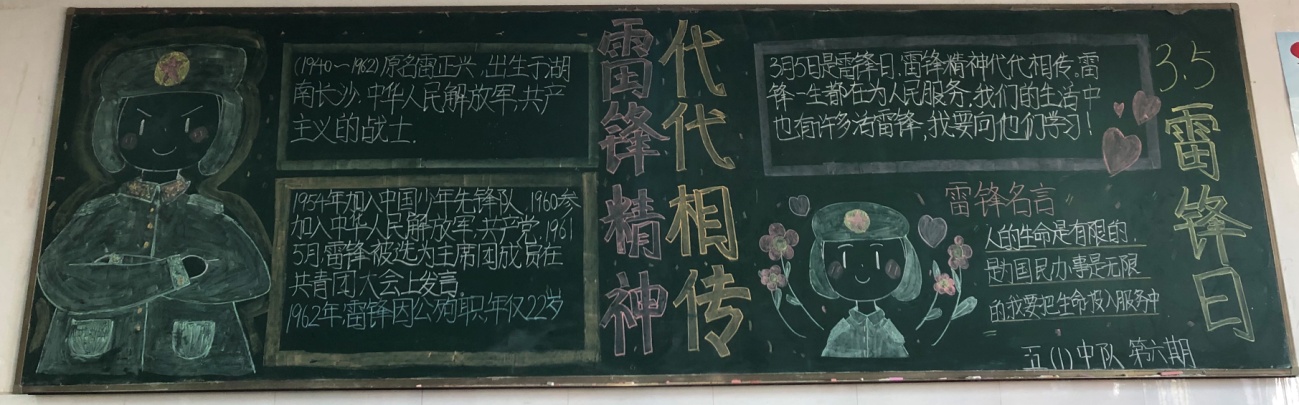 (1940～1962)原名雷正兴,出生于湖
南长沙.中华人民解放军.共产
主义的战士.
1954年加入中国少年先锋队,1960参
加入中华人民解放军.共产党,1961
5月雷锋被选为主席团成员在
共青团大会上发言
1962年雷锋因公殉职,年仅22岁
雷锋精神
代代相传
3月5日是雷锋日.雷锋精神代代相传.雷
锋一生都在为人民服务.我们的生活中
也有许多活雷锋,我要向他们学习!
雷锋名言
人的生命是有限的.
是为国民办事是无限
的我要把生命投入服务中
五(1)中队 第六期
3.5
雷锋日